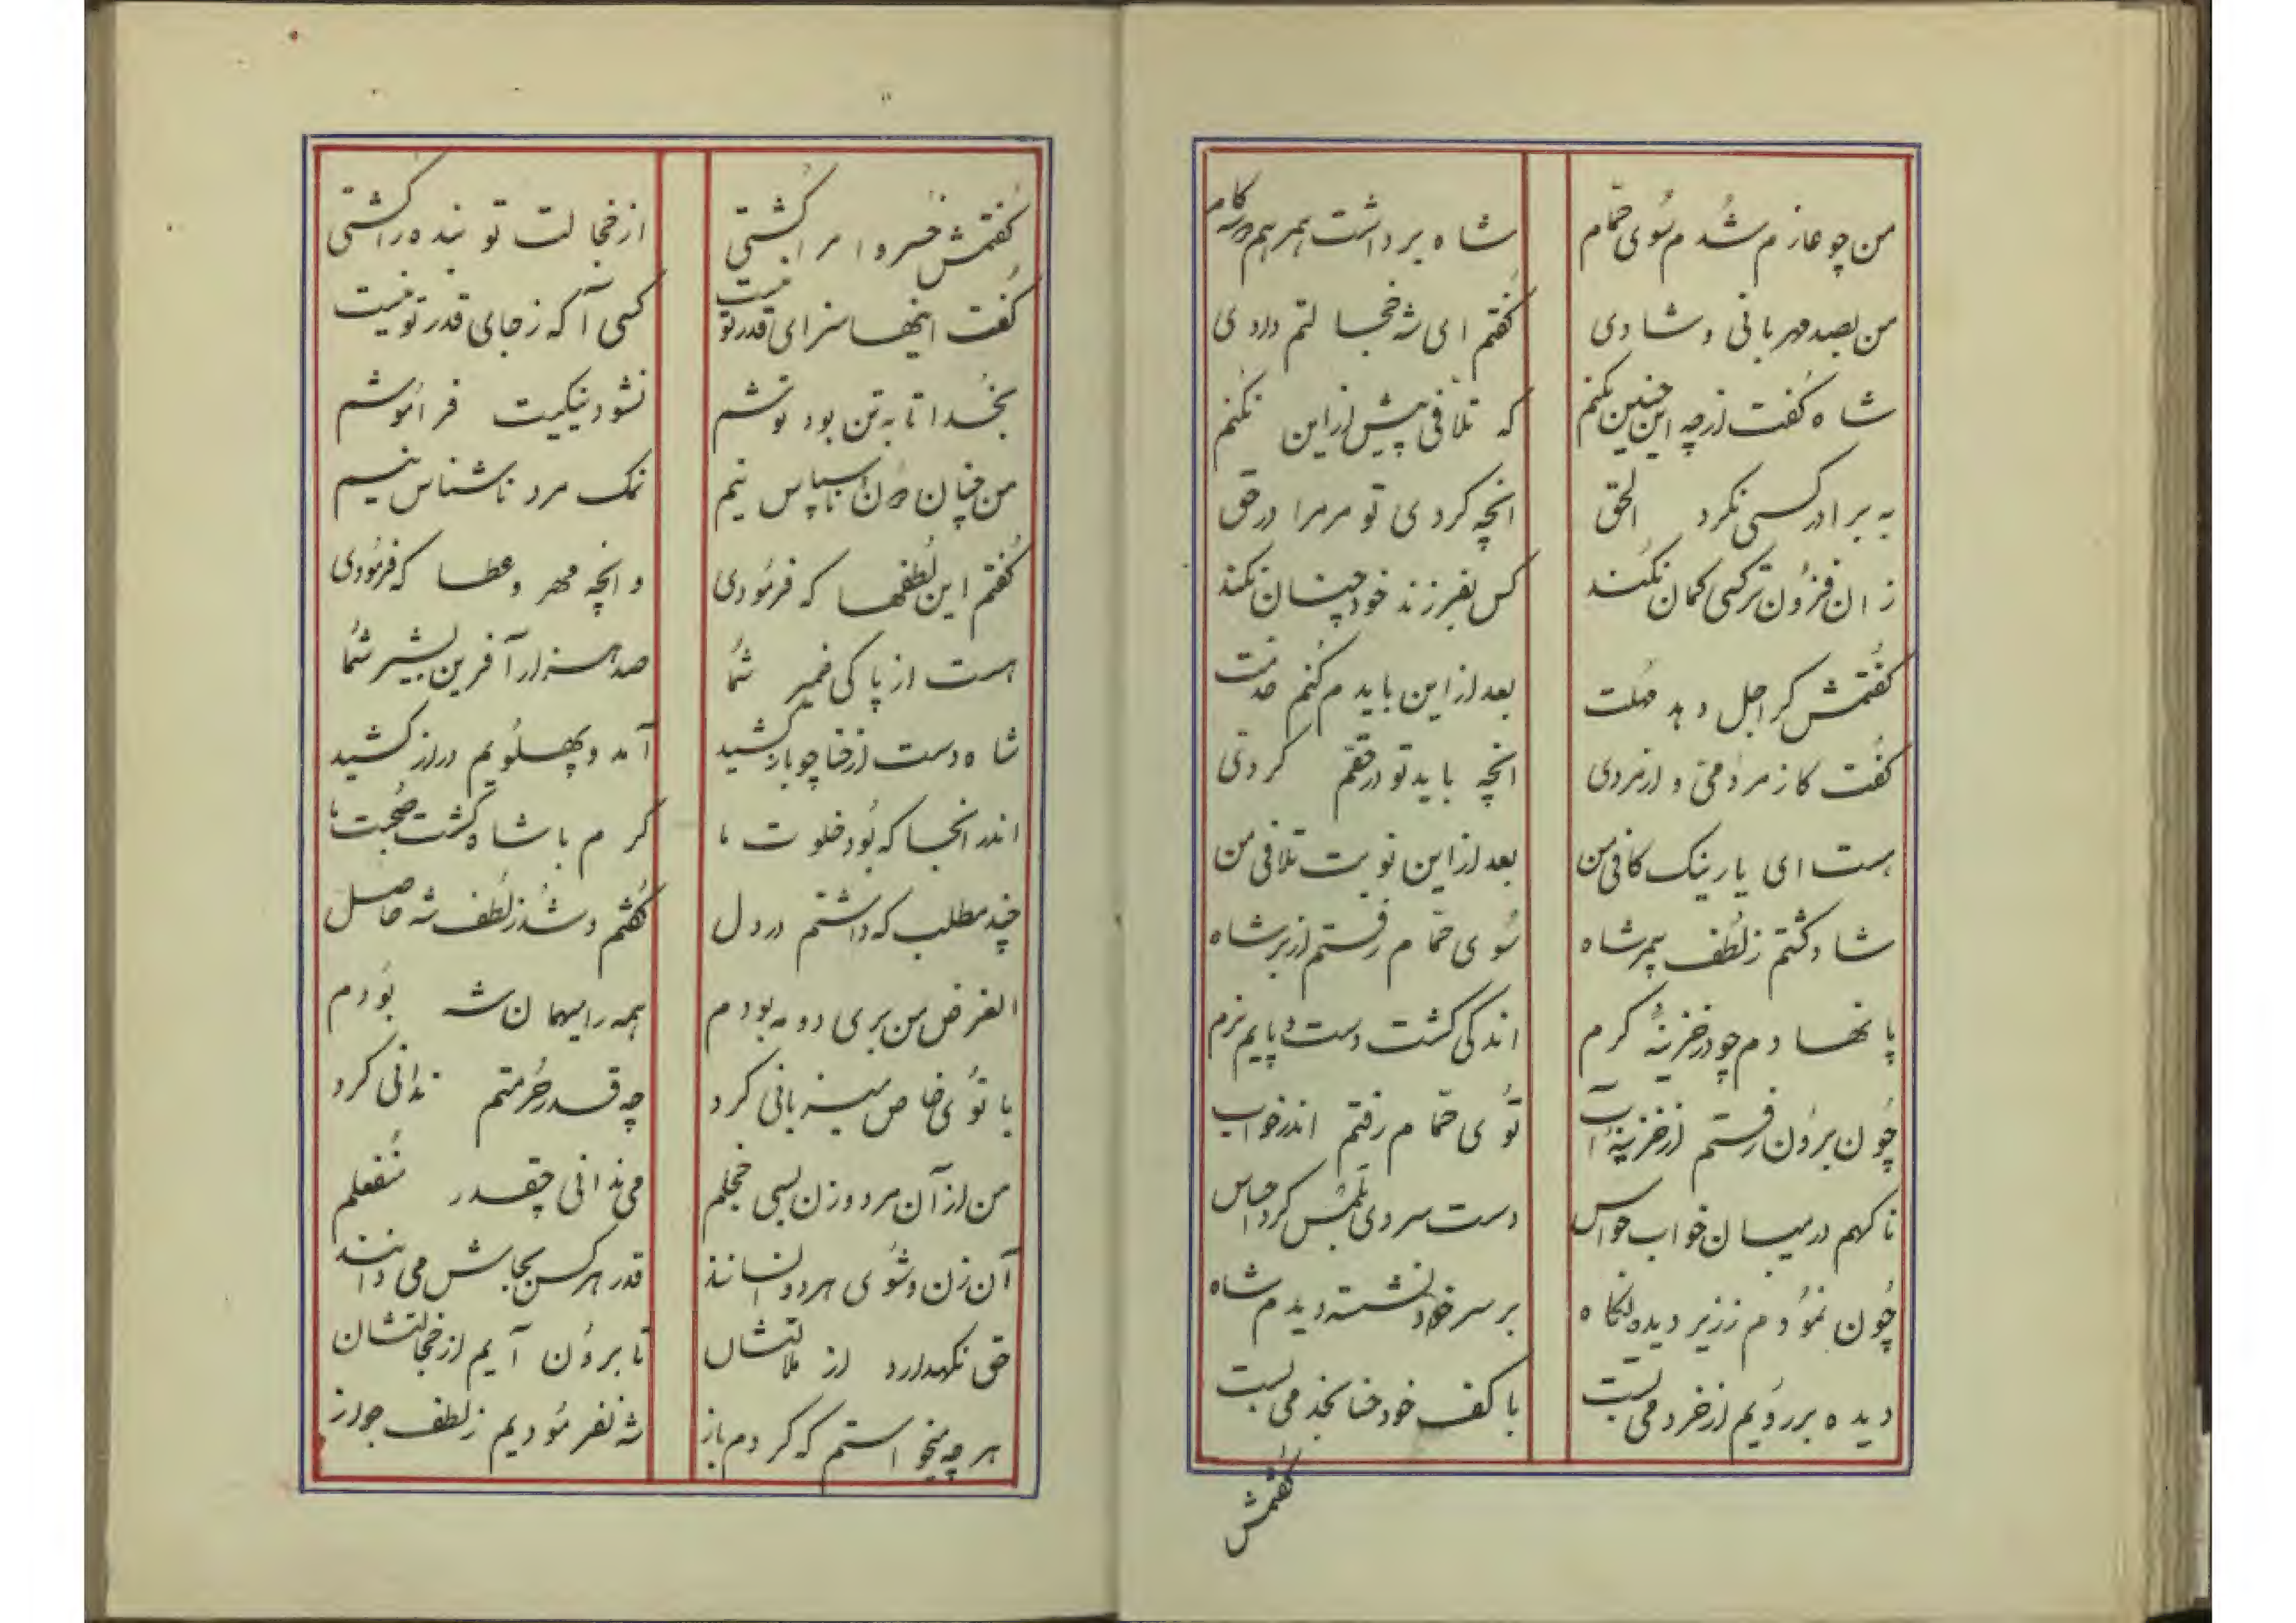 من چو عازم شدم سوی حمام شاه برداشت بهر هم دو سه گام
من بصد مهربانی و شادی گفتم ای شه خجالتم دادی
شاه گفت ازچه این چنین نکنم که تلافی پیش ازاین نکنم
به برادر کسی نکرد الحق انچه کردی تو مرمرا درحق
زان فزون تر کسی گمان نکند کس بفرزند خود چنان نکند
گفتمش گر اجل دهد مهلت بعد ازاین باید م کنم خدمت
گفت کاز مردمی و از مردی انچه باید تو درحقم کردی
هست ای یار نیک کافی من بعد ازاین نوبت تلافی من
شاد گشتم ز لطف بیمر شاه سوی حمام رفتم ازبر شاه
پا نهادم چو در خزینهٔ گرم اندکی گشت دست و پایم نرم
چون برون رفتم از خزینهٔ آب توی حمام رفتم اندر خواب
ناگهم درمیان خواب حواس دست سردی بلمس کرد حساس
چون نمودم ز زیر دیده نگاه بر سر خود نشسته دیدم شاه
دیده بر رویم از خرد می بست با کف خود حنا بخد می بست
گفتمش
گفتمش خسروا مرا کشتی ازخجالت تو بنده را کشتی
گفت اینها سزای قدر تو نیست کسی آگه ز جای قدر تو نیست
بخدا تا به تن بود توشم نشود نیکیت فراموشم
من چنان دون ناسپاس نیم نمک مرد ناشناس نیم
گفتم این لطفها که فرمودی وانچه مهر و عطا که فرمودی
هست از پاکی ضمیر شما صد هزار آفرین بشیر شما
شاه دست ازحنا چو باز کشید آمد و پهلویم دراز کشید
اندر انجا که بود خلوت ما گرم با شاه گشت صحبت ما
چند مطلب که داشتم در دل گفتم و شد ز لطف شه حاصل
الغرض من بری دو مه بودم همه را میهمان شه بودم
با توی خاص میزبانی کرد چه قدر حرمتم ندانی کرد
من از آن مرد و زن بسی خجلم می ندانی چقدر منفعلم
آن زن و شوی هر دو انسانند قدر هر کس بجاش می دانند
حق نگهدارد از ملالتشان تا برون آیم از خجالتشان
هر چه میخواستم که گردم باز شه نفرمودیم ز لطف جواز